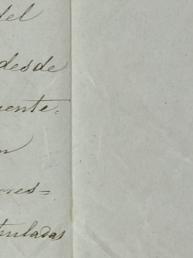 del
desde
uente.
n
ores=
tuladas